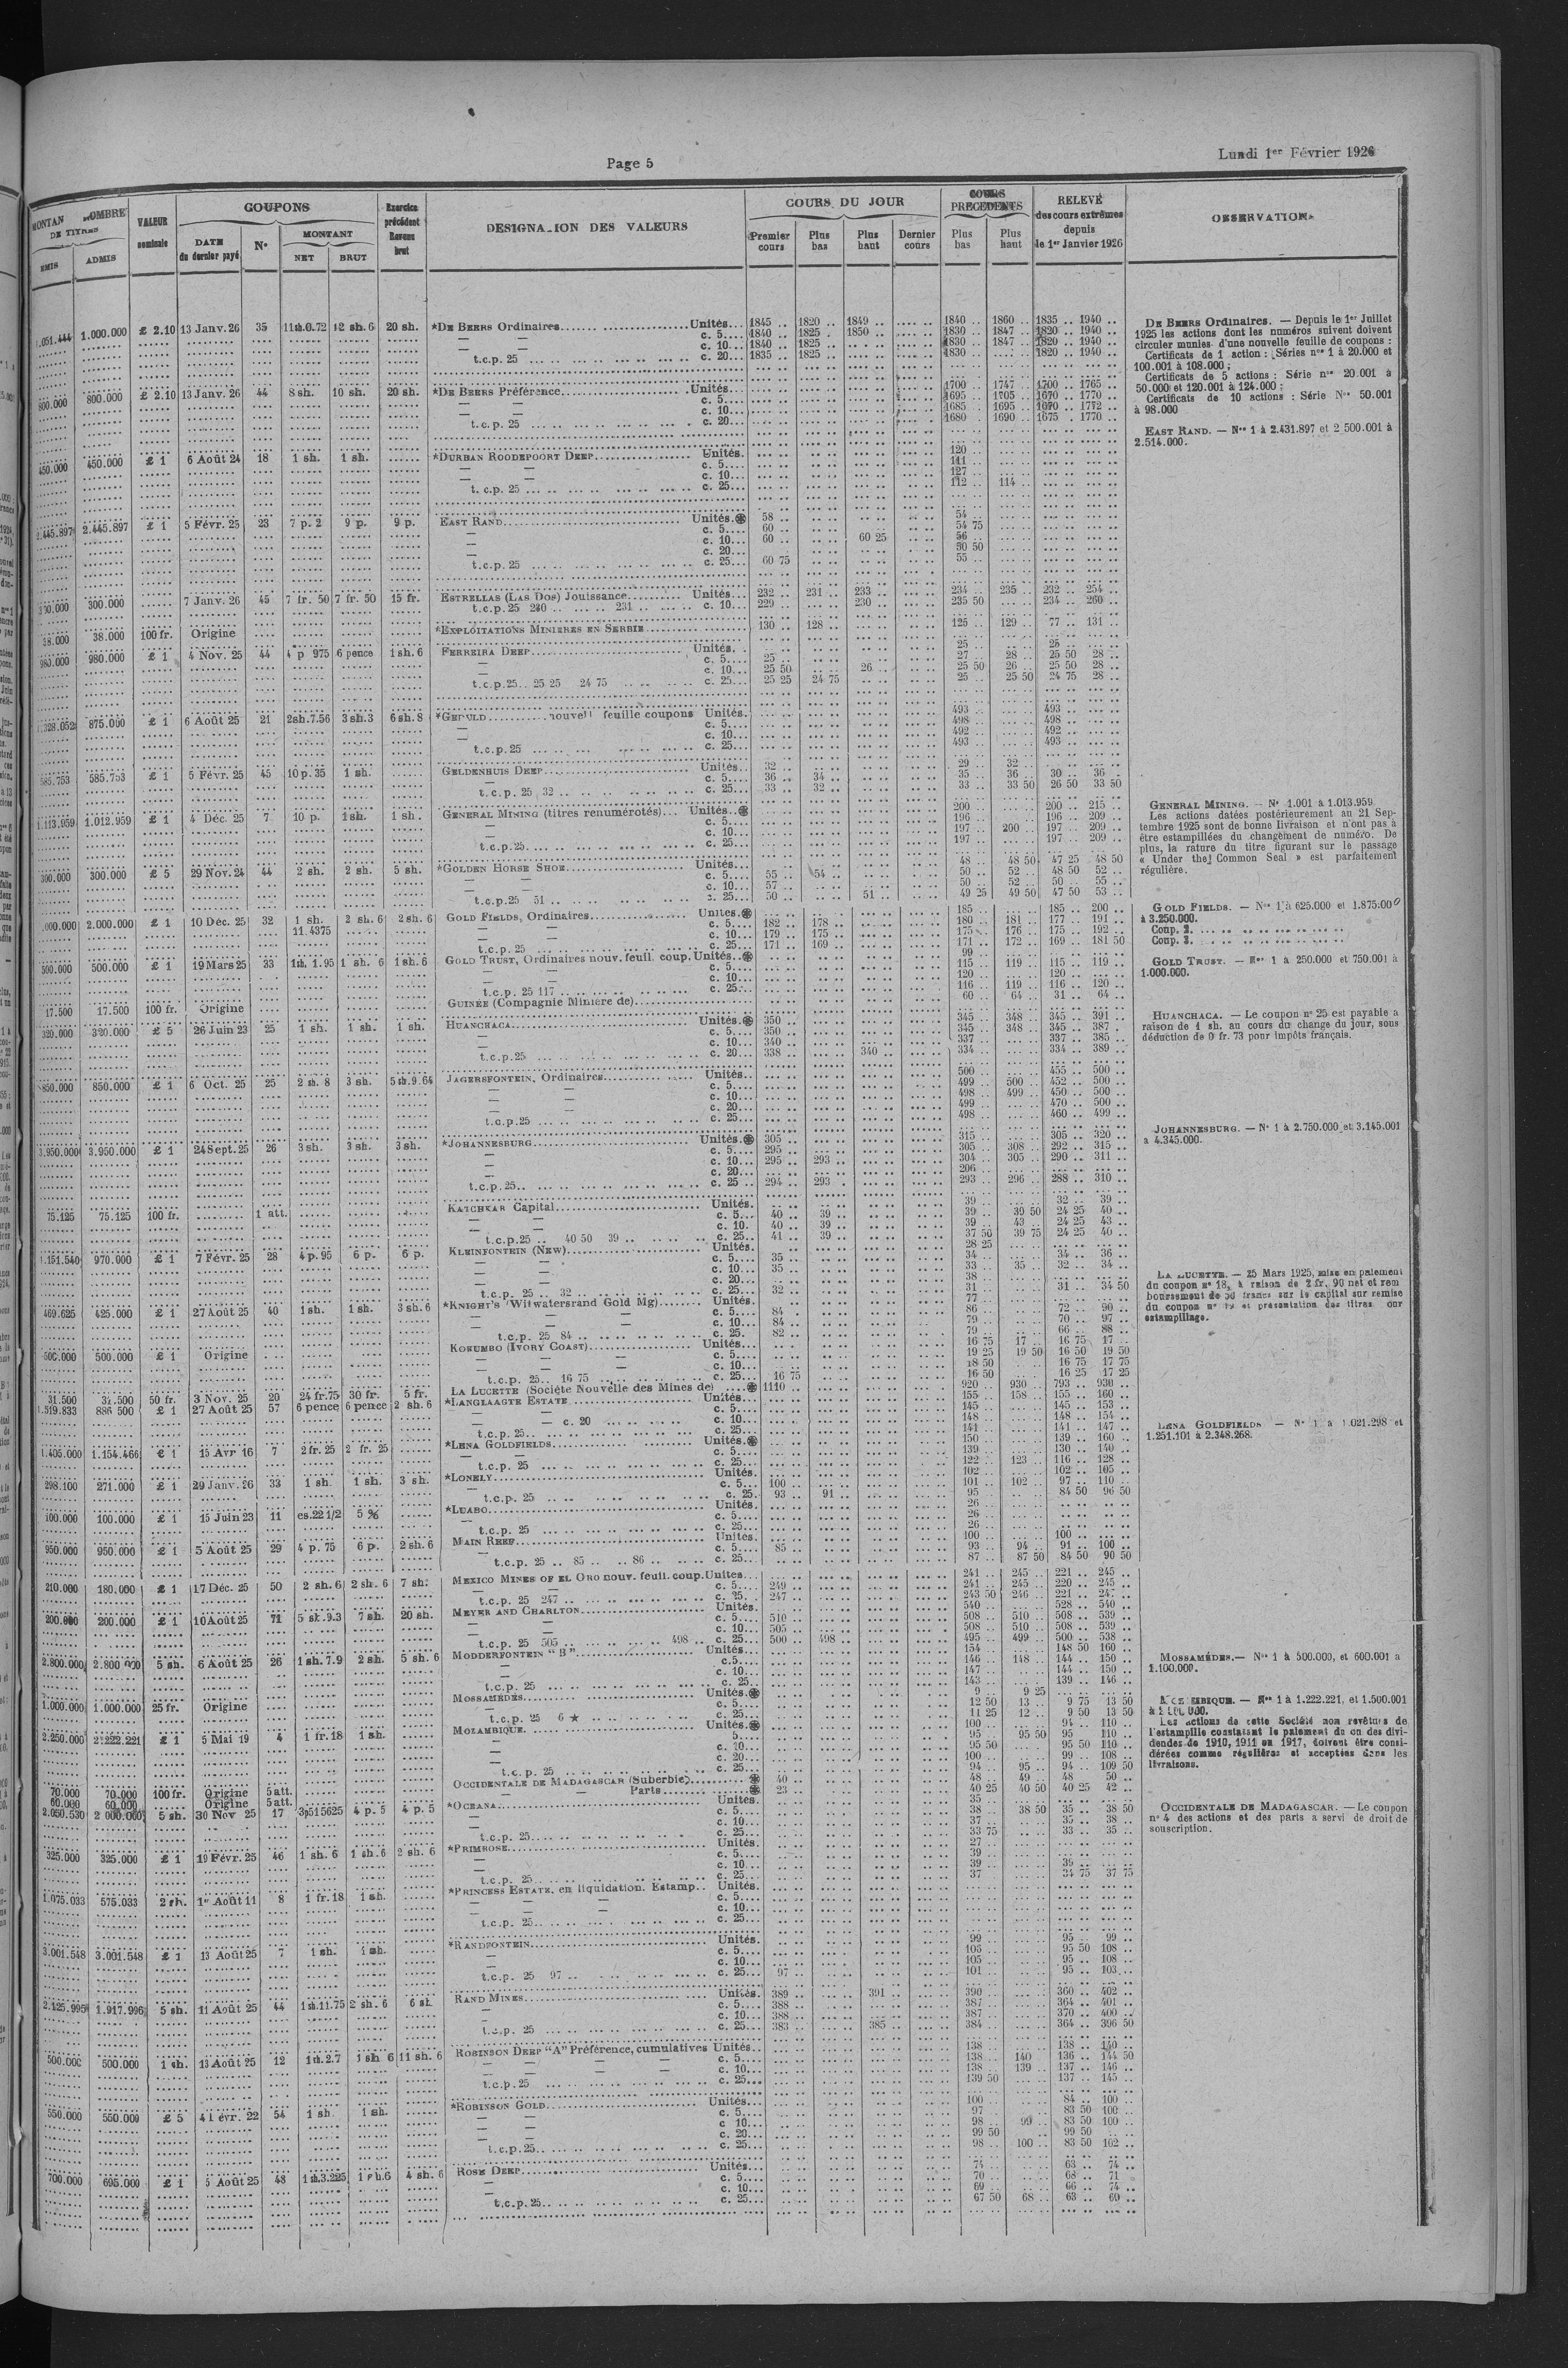 Page 5
Lundi 1er Février 1926
NOMBRE DE TITRES
ADMIS
VALEUR nominale
COUPONS
DATE du dernier payé
No
MONTANT
NET
BRUT
Exercice précédent Revenu brut
COURS DU JOUR
Premier cours
Plus bas
Plus haut
Dernier cours
COURS PRECEDENTS
Plus bas
Plus haut
RELEVÉ des cours extrêmes depuis le 1er Janvier 1926
1.000.000 £ 2.10 13 Janv. 26 35 12 sh. 6 20 sh. *DE BEERS Ordinaires Unités 1845 1820 1849 1840 1860 1835 1940
c. 5 1840 1825 1850 1830 1847 1820 1940
c. 10 1840 1825 1830 1847 1820 1940
t.c.p. 25 c. 20 1835 1825 1830 1820 1940
800.000 800.000 £ 2.10 13 Janv. 26 44 8 sh. 10 sh. 20 sh. *DE BEERS Préférence Unités 1700 1747 1700 1765
c. 5 1695 1705 1670 1770
c. 10 1685 1695 1670 1772
t.c.p. 25 c. 20 1680 1690 1675 1770
450.000 450.000 £ 1 6 Août 24 18 1 sh. 1 sh. *DURBAN ROODEPOORT DEEP Unités 120
c. 5 111
c. 10 127
t.c.p. 25 c. 25 112 114
2.445.897 2.445.897 £ 1 5 Févr. 25 23 7 p. 2 9 p. 9 p. EAST RAND Unités 58 54
c. 5 60 54 75
c. 10 60 60 25 56
c. 20 50
t.c.p. 25 c. 25 60 75 55
300.000 7 Janv. 26 45 7 fr. 50 7 fr. 50 15 fr. ESTRELLAS (LAS DOS) Jouissance Unités 232 231 233 234 235 232 254
t.c.p. 25 230 231 c. 10 229 230 235 50 234 260
38.000 100 fr. Origine *EXPLOITATIONS MINIERES EN SERBIE 130 128 125 129 77 131
980.000 980.000 £ 1 4 Nov. 25 44 4 p 975 6 pence 1 sh. 6 FERREIRA DEEP Unités 25 25
c. 5 25 27 28 25 50 28
c. 10 25 50 26 25 50 26 25 50 28
t.c.p. 25 25 25 24 75 c. 25 25 25 24 75 25 25 50 24 75 28
875.000 £ 1 6 Août 25 21 2sh.7.56 3 sh.3 6 sh. 8 nouvell feuille coupons Unités 493 493
c. 5 498 498
c. 10 492 492
t.c.p. 25 c. 25 493 493
585.753 585.753 £ 1 5 Févr. 25 45 10 p. 35 1 sh. GELDENHUIS DEEP Unités 32 29 32
c. 5 36 34 35 36 30 36
t.c.p. 25 32 c. 25 33 32 33 33 50 26 50 33 50
1.113.959 1.012.959 £ 1 4 Déc. 25 7 10 p. 1 sh. 1 sh. GENERAL MINING (titres renumérotés) Unités 200 200 215
c. 5 196 196 209
c. 10 197 200 197 209
t.c.p. 25 c. 25 197 197 209
300.000 300.000 £ 5 29 Nov. 24 44 2 sh. 2 sh. 5 sh. *GOLDEN HORSE SHOE Unités 48 48 50 47 25 48 50
c. 5 55 54 50 52 48 50 52
c. 10 57 50 52 50 55
t.c.p. 25 51 c. 25 50 51 49 25 49 50 47 50 53
2.000.000 £ 1 10 Déc. 25 32 1 sh. 11.4375 2 sh. 6 2 sh. 6 GOLD FIELDS, Ordinaires Unités 185 185 200
c. 5 182 178 180 181 177 191
c. 10 179 175 175 176 175 192
t.c.p. 25 c. 25 171 169 171 172 169 181 50
500.000 500.000 £ 1 19 Mars 25 33 1 sh. 1.95 1 sh. 6 1 sh. 6 GOLD TRUST, Ordinaires nouv. feuil. coup. Unités 99
c. 5 115 119 115 119
c. 10 120 120
t.c.p. 25 117 c. 25 116 119 116 120
17.500 17.500 100 fr. Origine GUINÉE (Compagnie Minière de) 60 64 31 64
320.000 320.000 £ 5 26 Juin 23 25 1 sh. 1 sh. 1 sh. HUANCHACA Unités 350 345 348 345 391
c. 5 350 345 348 345 387
c. 10 340 337 337 385
t.c.p. 25 c. 20 338 340 334 334 389
850.000 850.000 £ 1 6 Oct. 25 25 2 sh. 8 3 sh. 5 sh. 9.64 JAGERSFONTEIN, Ordinaires Unités 500 455 500
c. 5 499 500 452 500
c. 10 498 499 450 500
c. 20 499 470 500
t.c.p. 25 c. 25 498 460 499
3.950.000 3.950.000 £ 1 24 Sept. 25 26 3 sh. 3 sh. 3 sh. *JOHANNESBURG Unités 305 315 305 320
c. 5 295 305 308 292 315
c. 10 295 293 304 305 290 311
c. 20 206
t.c.p. 25 c. 25 294 293 293 296 288 310
75.125 75.125 100 fr. 1 att. KATCHKAR Capital Unités 39 32 39
c. 5 40 39 39 39 50 24 25 40
c. 10 40 39 39 43 24 25 43
t.c.p. 25 40 50 39 c. 25 41 39 37 50 39 75 24 25 40
1.151.540 970.000 £ 1 7 Févr. 25 28 4 p. 95 6 p. 6 p. KLEINFONTEIN (NEW) Unités 28 25
c. 5 35 34 34 36
c. 10 35 33 35 32 34
c. 20 38
t.c.p. 25 32 c. 25 32 31 31 34 50
469.625 425.000 £ 1 27 Août 25 40 1 sh. 1 sh. 3 sh. 6 *KNIGHT'S (Witwatersrand Gold Mg) Unités 77
c. 5 84 86 72 90
c. 10 84 79 70 97
t.c.p. 25 84 c. 25 82 79 66 88
500.000 500.000 £ 1 Origine KOKUMBO (IVORY COAST) Unités 16 75 17 16 75 17
c. 5 19 25 19 50 16 50 19 50
c. 10 18 50 16 75 17 75
t.c.p. 25 16 75 c. 25 16 75 16 50 16 25 17 25
31.500 31.500 50 fr. 3 Nov. 25 20 24 fr. 75 30 fr. 5 fr. LA LUCETTE (Société Nouvelle des Mines de) 1110 920 930 793 930
1.519.833 886 500 £ 1 27 Août 25 57 6 pence 6 pence 2 sh. 6 *LANGLAAGTE ESTATE Unités 155 158 155 160
c. 5 145 145 153
c. 20 c. 10 148 148 154
t.c.p. 25 c. 25 141 141 147
1.405.000 1.154.466 £ 1 15 Avr 16 7 2 fr. 25 2 fr. 25 *LENA GOLDFIELDS Unités 150 139 160
c. 5 139 130 140
t.c.p. 25 c. 25 122 123 116 128
298.100 271.000 £ 1 29 Janv. 26 33 1 sh. 1 sh. 3 sh. *LONELY Unités 102 102 105
c. 5 100 101 102 97 110
t.c.p. 25 c. 25 93 91 95 84 50 96 50
100.000 100.000 £ 1 15 Juin 23 11 es. 22 1/2 5 % *LUABO Unités 26
c. 5 26
t.c.p. 25 c. 25 26
950.000 950.000 £ 1 5 Août 25 29 4 p. 75 6 p. 2 sh. 6 MAIN REEF Unités 100 100
c. 5 85 93 94 91 100
t.c.p. 25 85 86 c. 25 87 87 50 84 50 90 50
210.000 180.000 £ 1 17 Déc. 25 50 2 sh. 6 2 sh. 6 7 sh. MEXICO MINES OF EL ORO nouv. feuil. coup. Unités 241 245 221 245
c. 5 249 241 245 220 245
t.c.p. 25 247 247 243 50 246 221
200.000 200.000 £ 1 10 Août 25 71 5 sh. 9.3 7 sh. 20 sh. MEYER AND CHARLTON Unités 540 528 540
c. 5 510 508 510 508 539
c. 10 505 508 510 508 539
t.c.p. 25 505 498 c. 25 500 498 495 499 500 538
2.800.000 2.800.000 5 sh. 6 Août 25 26 1 sh. 7.9 2 sh. 5 sh. 6 MODDERFONTEIN "B" Unités 154 148 50 160
c. 5 146 148 144 150
c. 10 147 144 150
t.c.p. 25 c. 25 143 139 146
1.000.000 1.000.000 25 fr. Origine MOSSAMÉDÈS Unités 9 9 25
c. 5 12 50 13 9 75 13 50
t.c.p. 25 6 ★ c. 25 11 25 12 9 50 13 50
2.250.000 £ 1 5 Mai 19 4 1 fr. 18 1 sh. MOZAMBIQUE Unités 100 94 110
5 95 95 50 95 110
c. 10 95 50 95 50 110
c. 20 100 99 108
t.c.p. 25 c. 25 94 95 94 109 50
70.000 70.000 100 fr. Origine 5 att. OCCIDENTALE DE MADAGASCAR (Suberbie) 40 48 49 48 50
60.000 60.000 Origine 5 att. Parts 23 40 25 40 50 40 25 42
2.050.530 2 000.000 5 sh. 30 Nov 25 17 3p515625 4 p. 5 4 p. 5 *OCEANA Unités 35
c. 5 38 38 50 35 38 50
c. 10 37 35 38
t.c.p. 25 c. 25 33 75 33 35
325.000 325.000 £ 1 19 Févr. 25 46 1 sh. 6 1 sh. 6 2 sh. 6 *PRIMROSE Unités 27
c. 5 39
c. 10 39 39
t.c.p. 25 c. 25 37 34 75 37 75
1.075.033 575.033 2 sh. 1er Août 11 8 1 fr. 18 1 sh. *PRINCESS ESTATE. en liquidation. Estamp. Unités
c. 5
c. 10
t.c.p. 25 c. 25
3.001.548 3.001.548 £ 1 13 Août 25 7 1 sh. 1 sh. *RANDFONTEIN Unités 99 95 99
c. 5 105 95 50 108
c. 10 105 95 108
t.c.p. 25 97 c. 25 97 101 95 103
2.125.995 1.917.996 5 sh. 11 Août 25 44 1 sh. 11.75 2 sh. 6 6 sh. RAND MINES Unités 389 391 390 360 402
c. 5 388 387 364 401
c. 10 388 387 370 400
t.c.p. 25 c. 25 383 385 384 364 396 50
500.000 500.000 1 sh. 13 Août 25 12 1 sh. 2.7 1 sh 6 11 sh. 6 ROBINSON DEEP "A" Préférence, cumulatives Unités 138 138 140
c. 5 138 140 136 144 50
c. 10 138 139 137 146
t.c.p. 25 c. 25 139 50 137 145
550.000 550.000 £ 5 54 1 sh. 1 sh. *ROBINSON GOLD Unités 100 84 100
c. 5 97 83 50 100
c. 10 98 99 83 50 100
c. 20 99 50 99 50
t.c.p. 25 c. 25 98 100 83 50 102
700.000 695.000 £ 1 5 Août 25 48 1 sh.3.225 1 sh.6 4 sh. 6 ROSE DEEP Unités 74 63 74
c. 5 70 68 71
c. 10 69 66 74
t.c.p. 25 c. 25 67 50 68 63 69
DE BEERS Ordinaires. — Depuis le 1er Juillet
1925 les actions dont les numéros suivent doivent
circuler munies d'une nouvelle feuille de coupons :
Certificats de 1 action : Séries nos 1 à 20.000 et
100.001 à 108.000 ;
Certificats de 5 actions : Série nos 20.001 à
50.000 et 120.001 à 124.000 ;
Certificats de 10 actions : Série Nos 50.001
à 98.000
EAST RAND. — Nos 1 à 2.431.897 et 2 500.001 à
2.514.000.
GENERAL MINING. — No 1.001 à 1.013.959
Les actions datées postérieurement au 21 Sep-
tembre 1925 sont de bonne livraison et n'ont pas à
être estampillées du changement de numéro. De
plus, la rature du titre figurant sur le passage
« Under the Common Seal » est parfaitement
régulière.
GOLD FIELDS. — Nos 1 à 625.000 et 1.875.000
à 3.250.000.
Coup. 2.
Coup. 3.
GOLD TRUST. — Nos 1 à 250.000 et 750.001 à
1.000.000.
HUANCHACA. — Le coupon no 25 est payable à
raison de 1 sh. au cours du change du jour, sous
déduction de 0 fr. 73 pour impôts français.
JOHANNESBURG. — No 1 à 2.750.000 et 3.145.001
à 4.345.000.
LA LUCETTE. — 25 Mars 1925, mise en paiement
du coupon no 18, à raison de 2 fr. 90 net et rem
boursement de francs sur le capital sur remise
du coupon no 19 et présentation des titres
estampillage.
LENA GOLDFIELDS — No 1 à 1.021.298 et
1.251.101 à 2.348.268.
MOSSAMÉDÈS.— Nos 1 à 500.000, et 600.001 à
1.100.000.
Nos 1 à 1.222.221, et 1.500.001
Les actions de cette Société non revêtues de
l'estampille constatant le paiement du ou des divi-
dendes de 1910, 1911 ou 1917, doivent être consi-
dérées comme régulières et acceptées dans les
livraisons.
OCCIDENTALE DE MADAGASCAR. — Le coupon
no 4 des actions et des parts a servi de droit de
souscription.